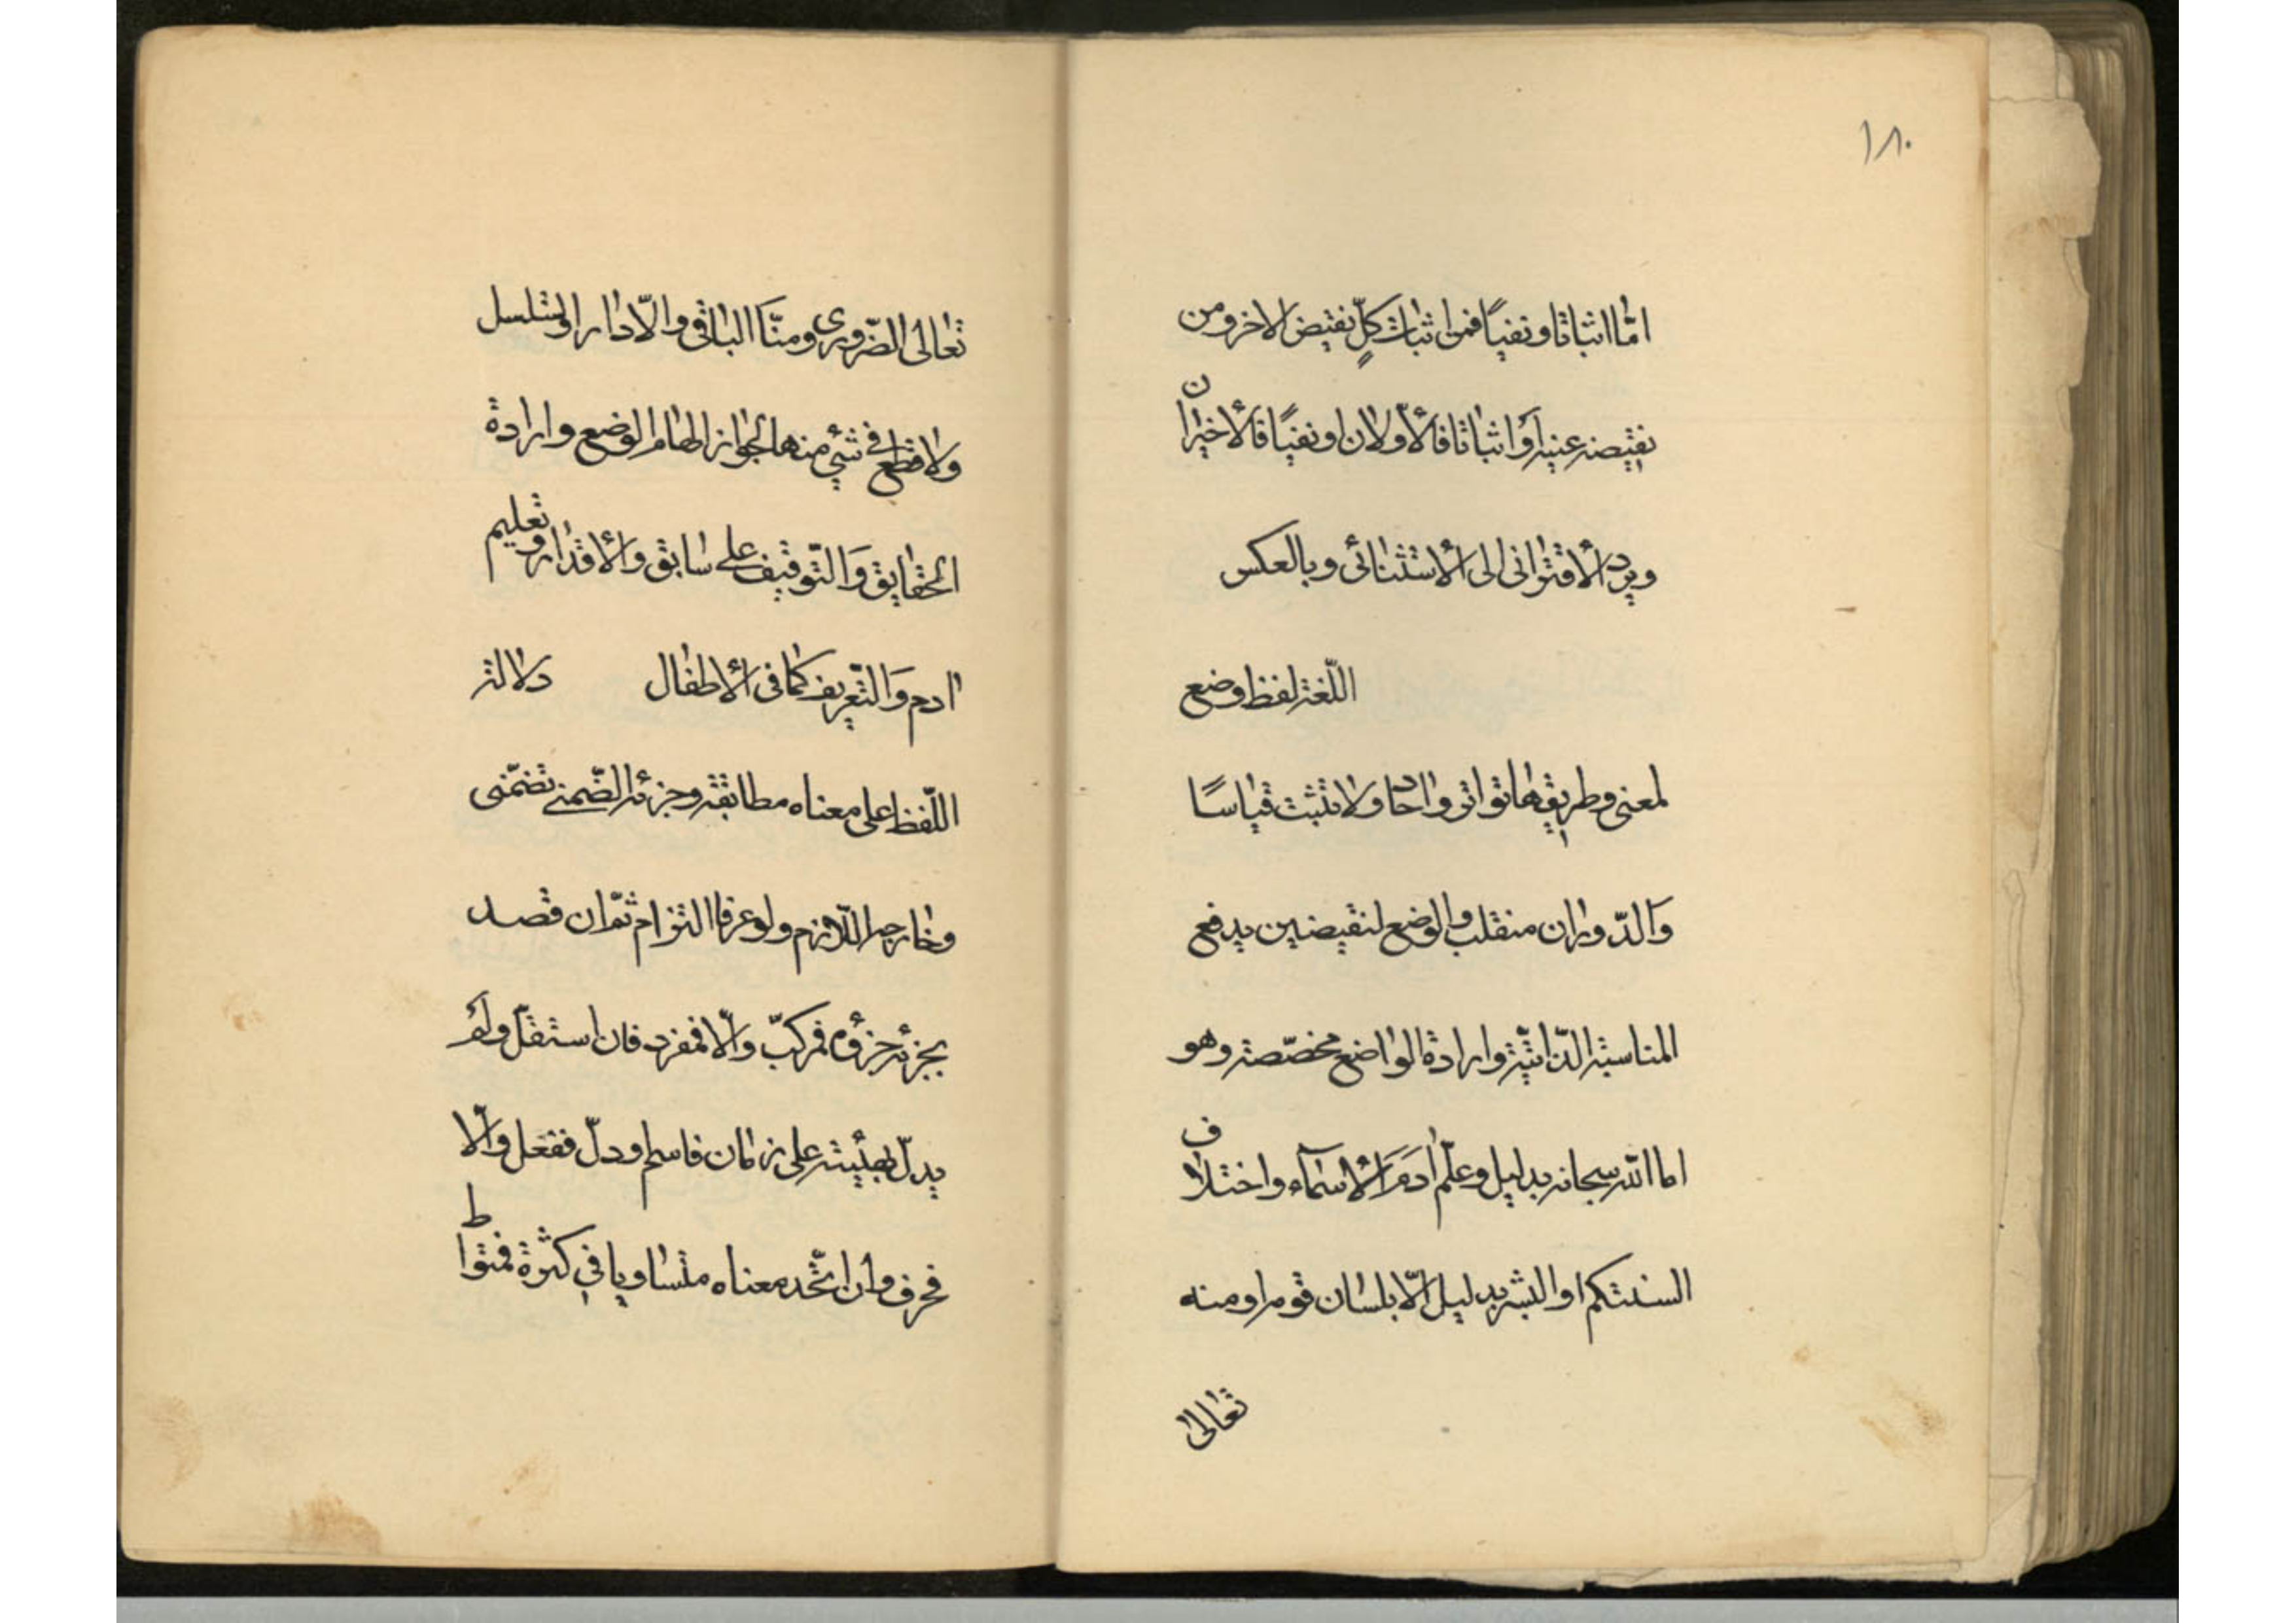 ١٨٠
امّا اثباتا و نفيًا فمن اثبات كلّ نقيض الاخر و من
نقيضه عينه أو اثباتا فالأولان او نفيًا فالأخيران
ويرد الأقترانى الى الأستثنائى وبالعكس
اللّغة لفظ وضع
لمعنى وطريقها تواتر واحاد ولا تثبت قياسًا
وَالدّوران منقلب والوضع لنقيضين يدفع
المناسبة الذّاتيّة وارادة الواضع مخصّصة وهو
اما الله سبحانه بدليل وعلّم ادَمَ الأسمآء واختلاف
السنتكم او البشر بدليل الّا بلسان قومه او منه
تعالى
تعالى الضّرورى ومنّا الباقى والّا دار او تسلسل
ولا قطع فى شئ منها لجواز الهام الوضع وارادة
الحقايق وَالتّوقيف على سابق والأقدار وتعليم
ادم وَالتّعريف كما فى الأطفال دلالة
اللّفظ على معناه مطابقة وجزئه الضّمنى تضمّنى
وخارجه اللّازم ولو عرفا التزام ثمّ ان قصد
بجزئه جزؤه فمركبّ والّا فمفرد فان استقلّ ولم
يدلّ بهيئيته على زمان فاسم او دلّ ففعل والّا
فحرف وان اتّحد معناه متساويا فى كثرة فمتواط